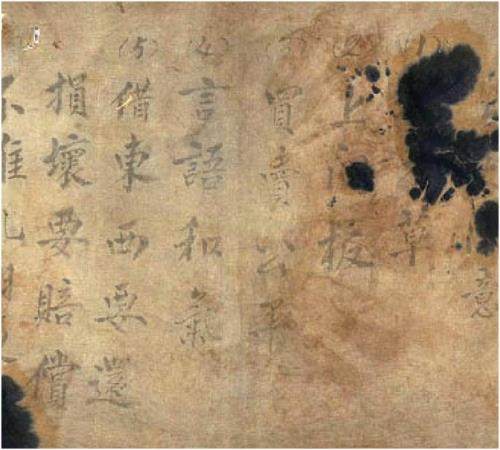 意
(1) 草
(2) 上門板
(3) 買賣公平
(4) 言語和氣
(5) 借東西要還
損壞要賠償
不准